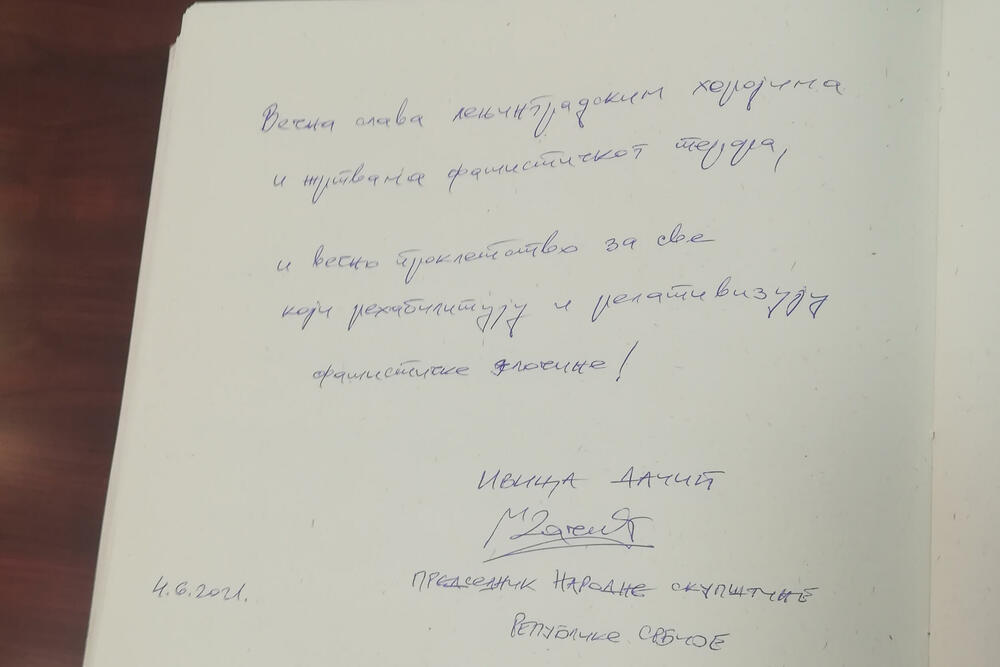 Вечна слава лењинградским херојима
и жртвама фашистичког терора,
и вечно проклетство за све
који рехабилитују и релативизују
фашистичке злочине!
ИВИЦА ДАЧИЋ
4.6.2021.
ПРЕДСЕДНИК НАРОДНЕ СКУПШТИНЕ
РЕПУБЛИКЕ СРБИЈЕ